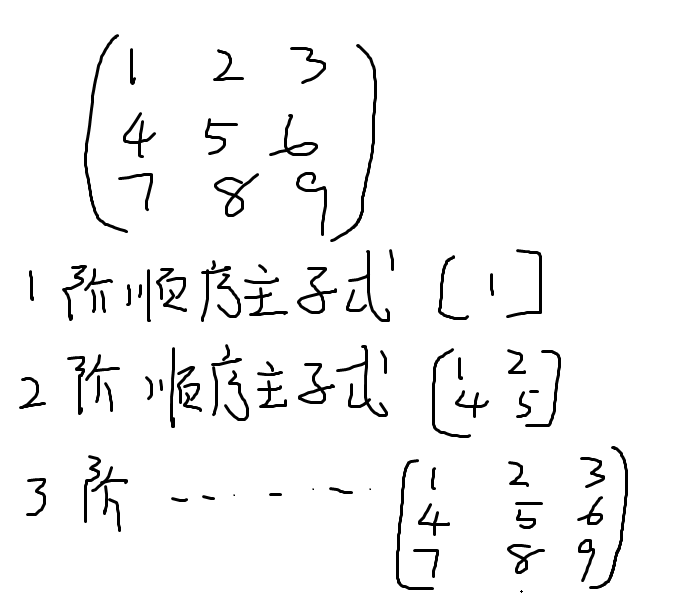 1 2 3
4 5 6
7 8 9
1阶顺序主子式 [1]
2阶顺序主子式 [1 2
4 5]
3阶 ------ [1 2 3
4 5 6
7 8 9]